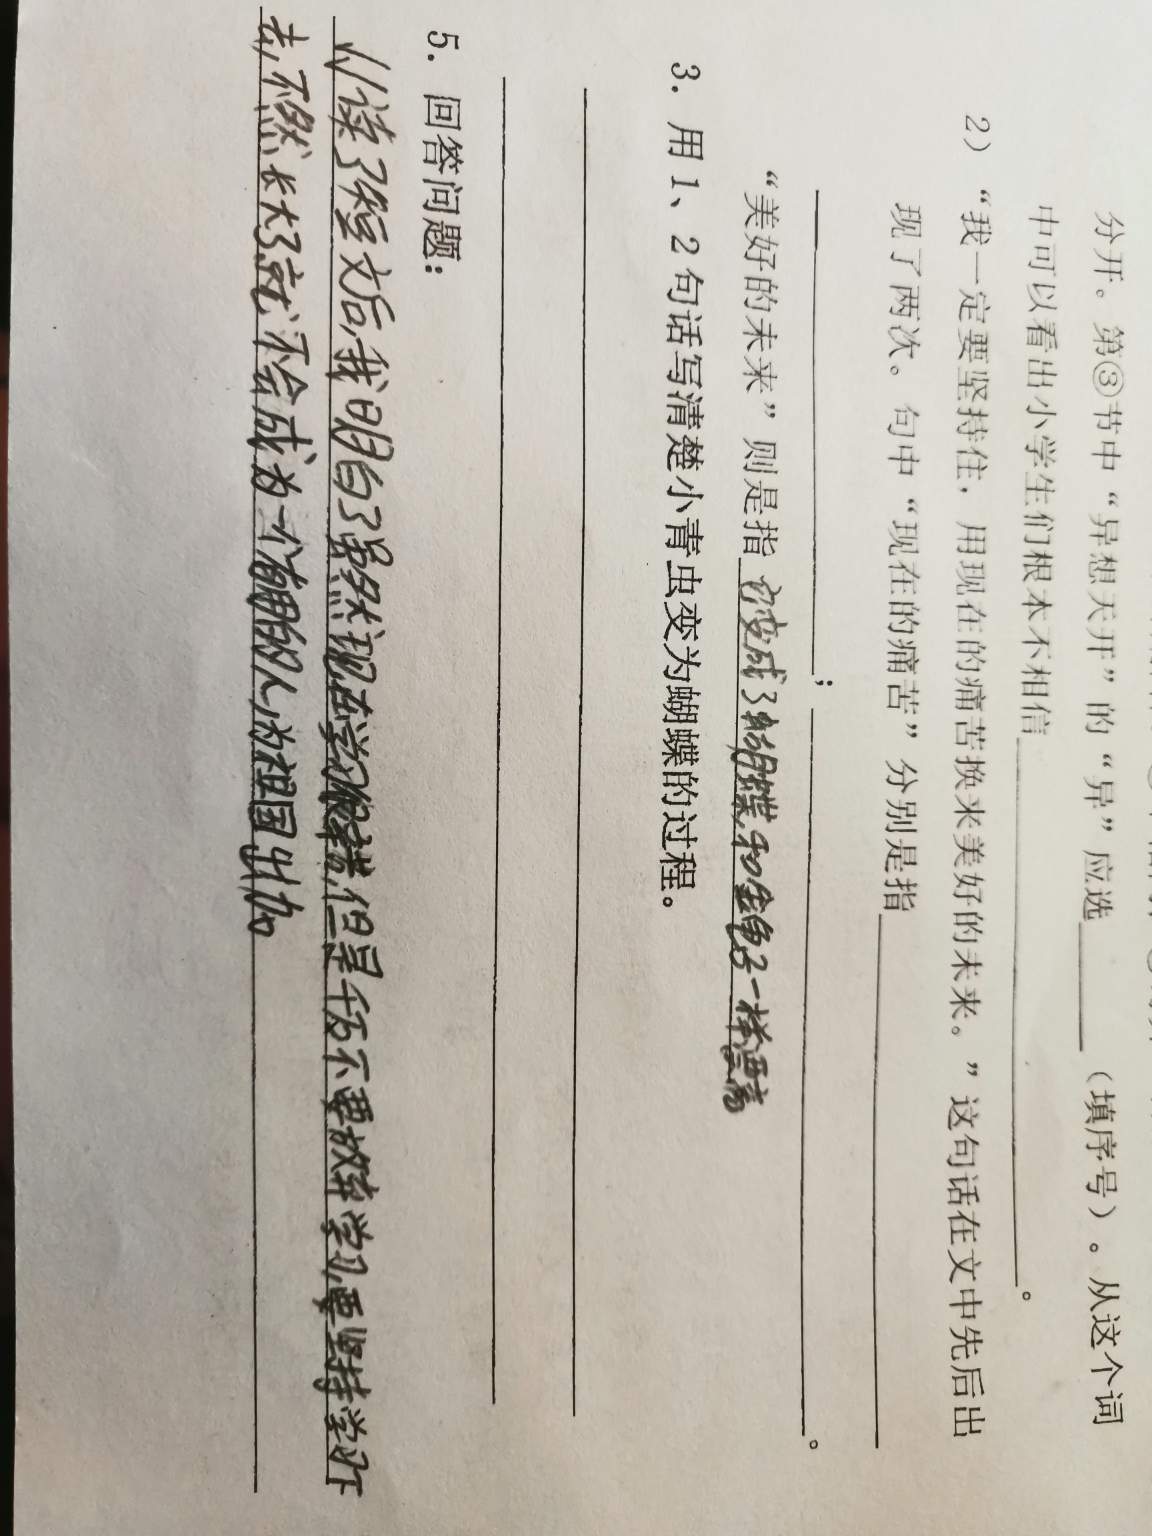 分开。第③节中“异想天开”的“异”应选（填序号）。从这个词
中可以看出小学生们根本不相信。
2）“我一定要坚持住，用现在的痛苦换来美好的未来。”这句话在文中先后出
现了两次。句中“现在的痛苦”分别是指
；。
“美好的未来”则是指 变成了蝴蝶,和金色子一样
3. 用1、2句话写清楚小青虫变为蝴蝶的过程。
5. 回答问题：
(1)读了短文后,我明白了虽然现在学习很苦,但是千万不要放弃学习,要坚持学习下
去,不然长大了就不会成为一个有用的人,为祖国出力。